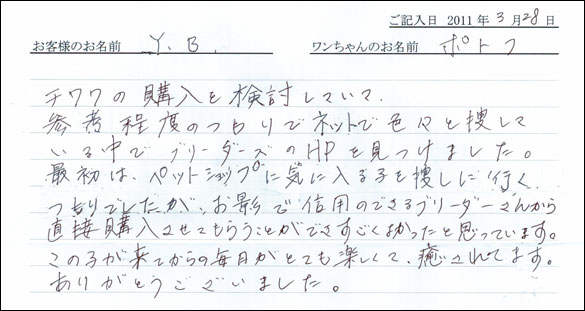 ご記入日 2011年3月28日
お客様のお名前 Y.B. ワンちゃんのお名前 ポトフ
チワワの購入を検討していて、
参考程度のつもりでネットで色々と捜して
いる中でブリーダーズのHPを見つけました。
最初は、ペットショップに気に入る子を捜しに行く
つもりでしたが、お影で信用のできるブリーダーさんから
直接購入させてもらうことができすごくよかったと思っています。
この子が来てからの毎日がとても楽しくて、癒されてます。
ありがとうございました。